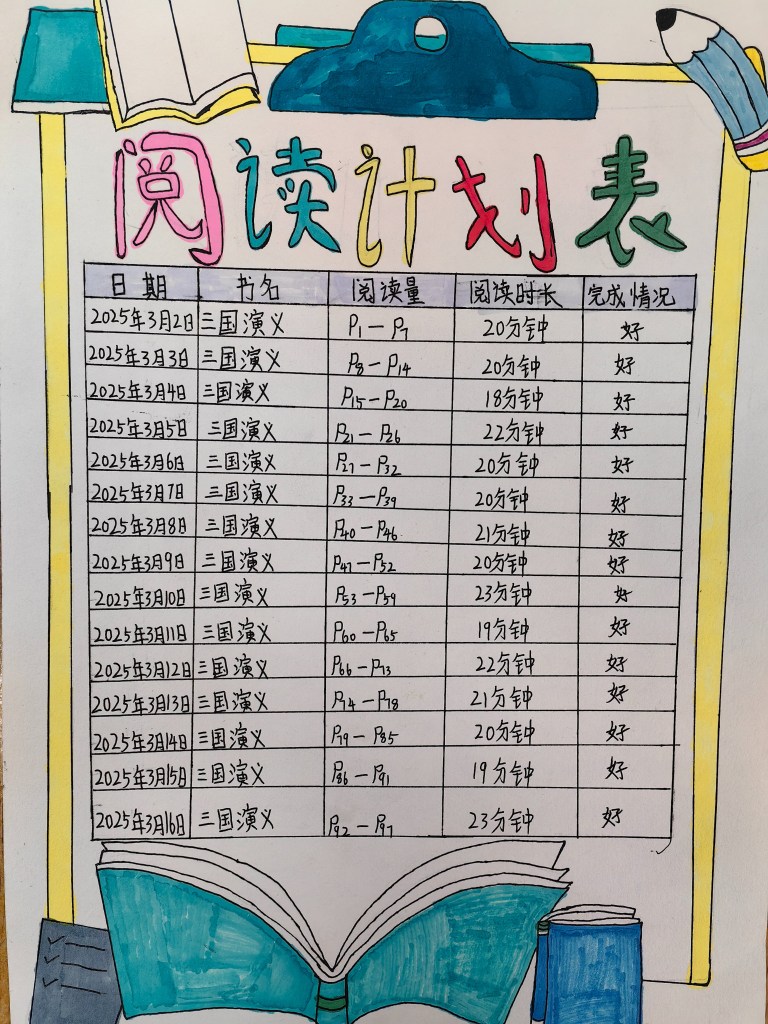 阅读计划表
日期 书名 阅读量 阅读时长 完成情况
2025年3月2日 三国演义 P1—P7 20分钟 好
2025年3月3日 三国演义 P8—P14 20分钟 好
2025年3月4日 三国演义 P15—P20 18分钟 好
2025年3月5日 三国演义 P21—P26 22分钟 好
2025年3月6日 三国演义 P27—P32 20分钟 好
2025年3月7日 三国演义 P33—P39 20分钟 好
2025年3月8日 三国演义 P40—P46 21分钟 好
2025年3月9日 三国演义 P47—P52 20分钟 好
2025年3月10日 三国演义 P53—P59 23分钟 好
2025年3月11日 三国演义 P60—P65 19分钟 好
2025年3月12日 三国演义 P66—P73 22分钟 好
2025年3月13日 三国演义 P74—P78 21分钟 好
2025年3月14日 三国演义 P79—P85 20分钟 好
2025年3月15日 三国演义 P86—P91 19分钟 好
2025年3月16日 三国演义 P92—P97 23分钟 好